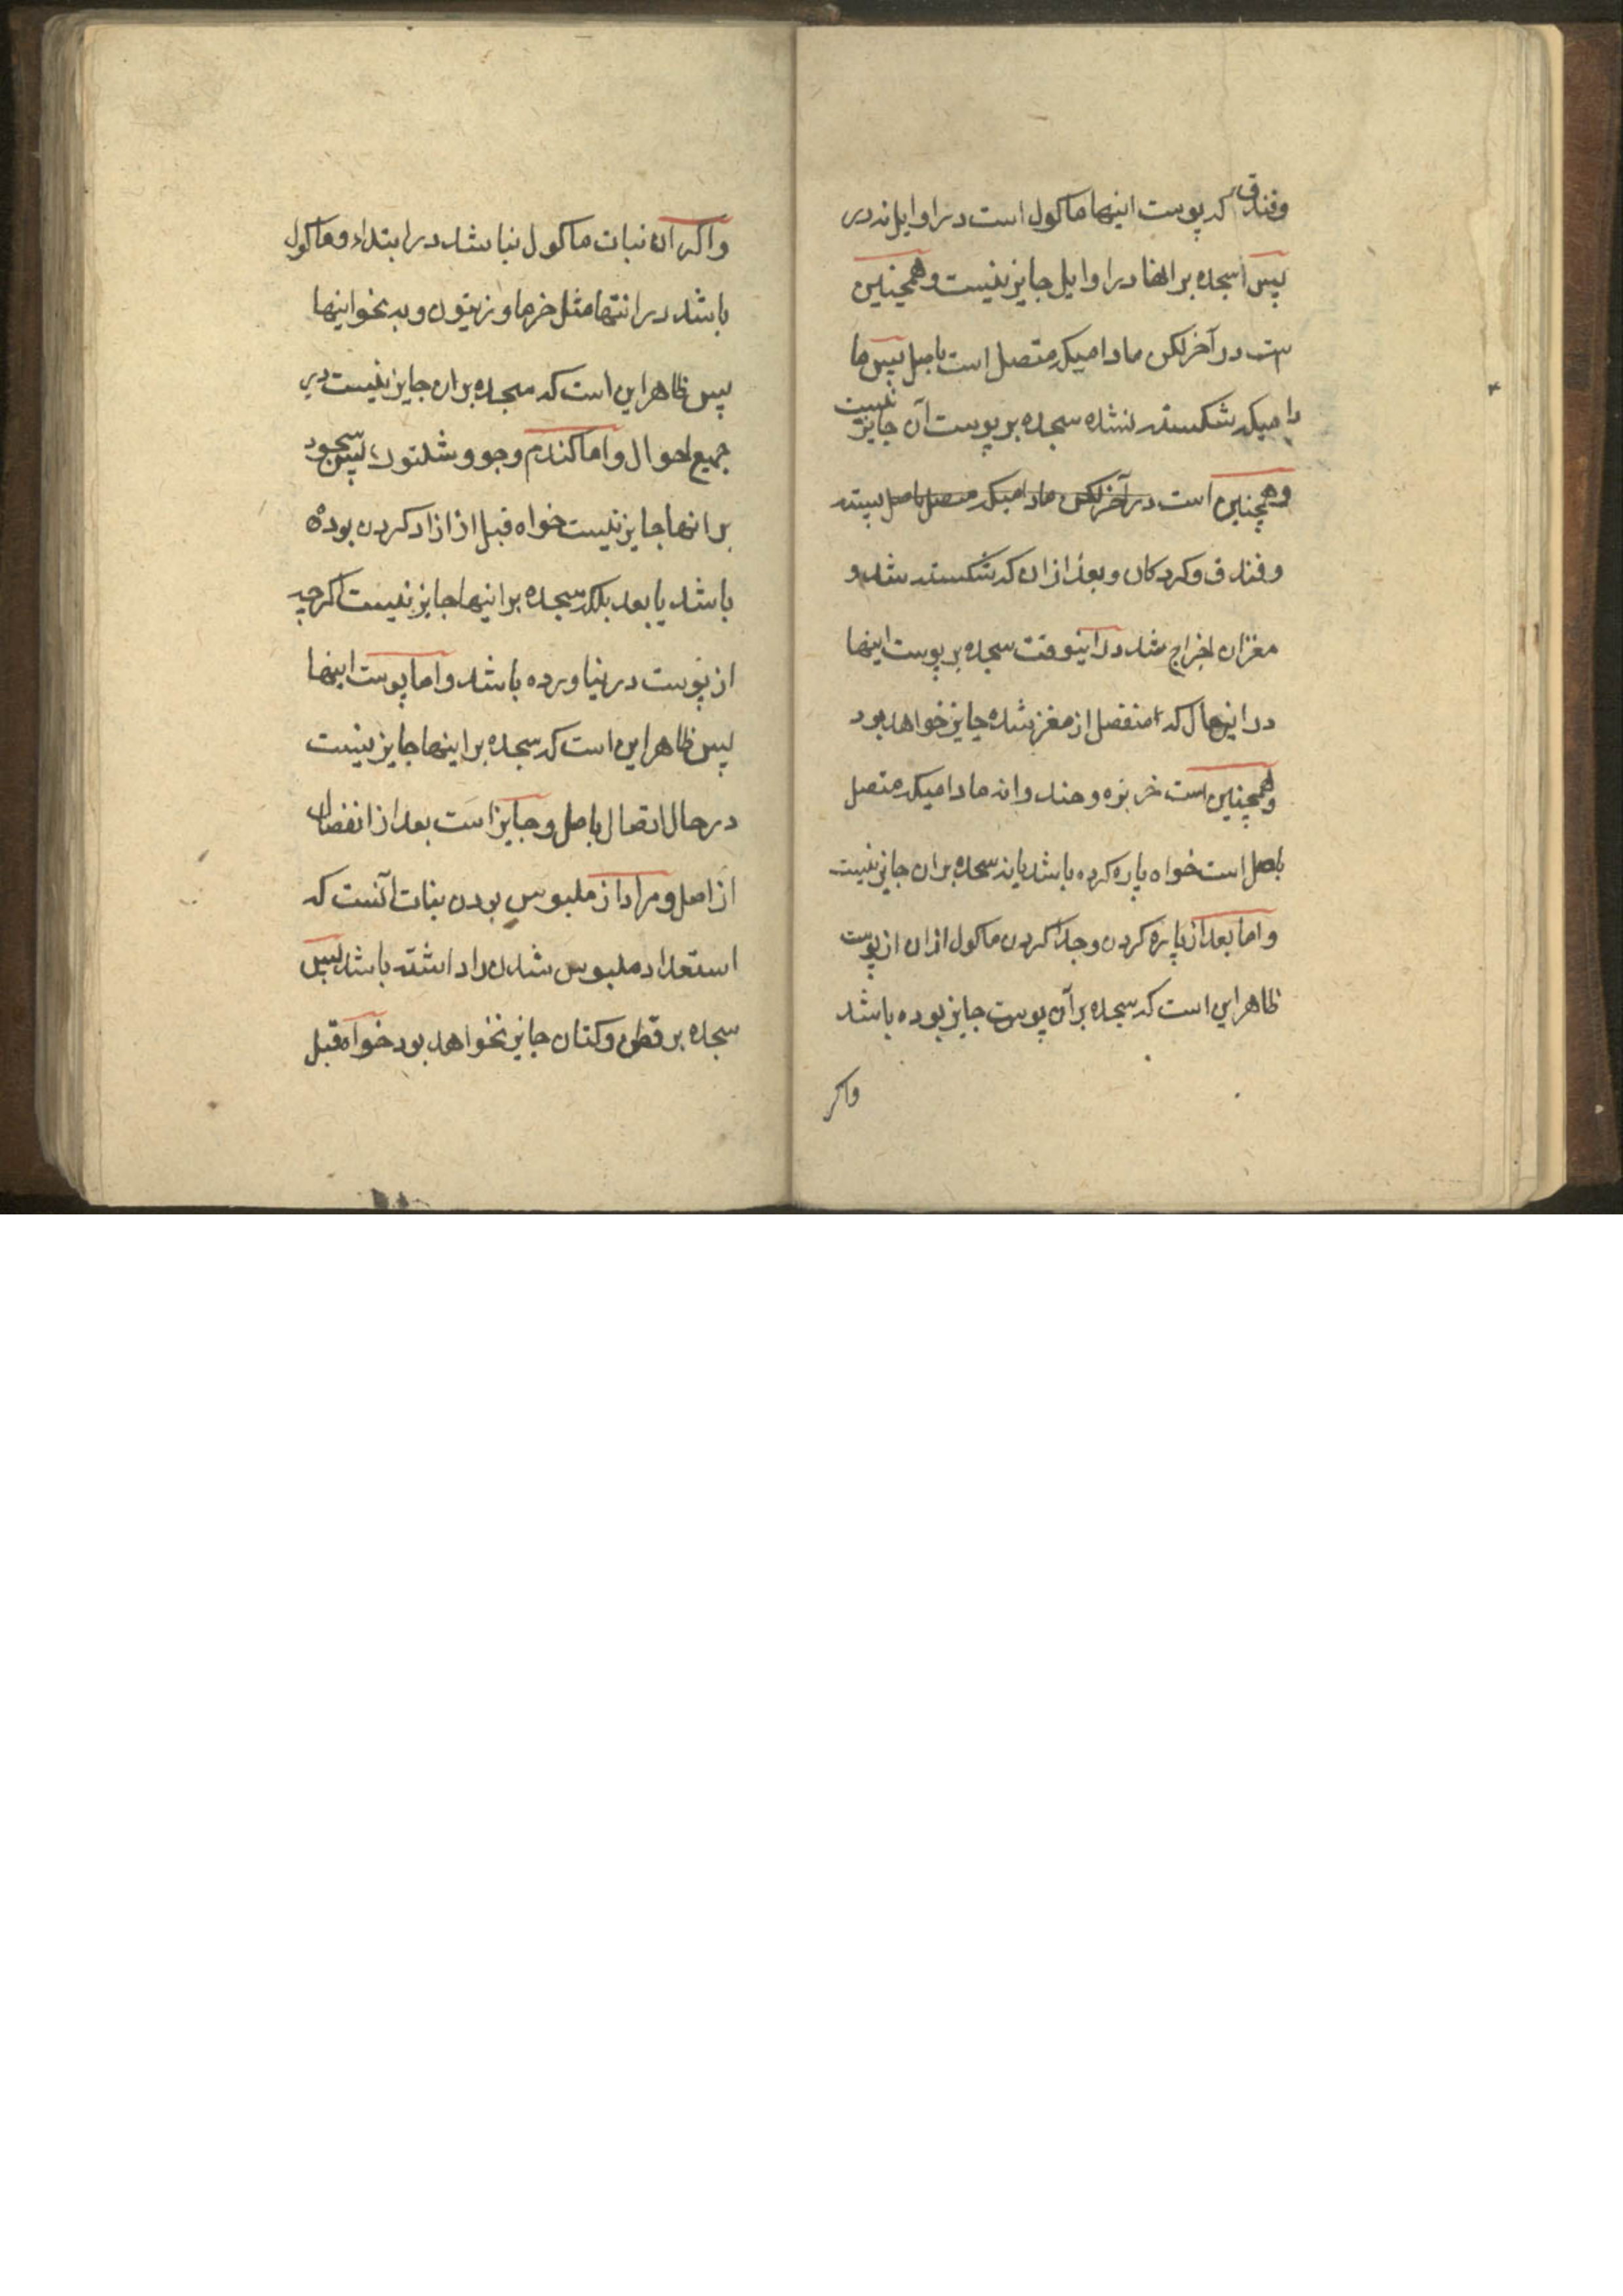 وفندق که پوست اینها ماکول است در اوایل نه در
پس سجده بر انها در اوایل جایز نیست و همچنین
ست در آخر لکن مادامیکه متصل است باصل پس ما
دامیکه شکسته نشده سجده بر پوست آن جایز نیست
و همچنین است در آخر لکن مادامیکه متصل باصل پسته
و فندق و کردکان و بعد از ان که شکسته شد و
مغز ان اخراج شد در اینوقت سجده بر پوست اینها
در اینحال که منفصل از مغز شده جایز خواهد بود
و همچنین است خربزه و هندوانه مادامیکه متصل
باصل است خواه پاره کرده باشد یا نه سجده بر ان جایز نیست
و اما بعد از پاره کردن و جدا کردن ماکول از ان از پوست
ظاهر این است که سجده بر آن پوست جایز بوده باشد
واکر
واکر ان نبات ماکول نباشد در ابتداء و ماکول
باشد در انتها مثل خرما و زیتون و به نحو اینها
پس ظاهر این است که سجده بر ان جایز نیست در
جمیع احوال و اما کندم و جو و شلتوک پس سجود
بر انها جایز نیست خواه قبل از ازاد کردن بوده
باشد یا بعد بلکه سجده بر اینها جایز نیست اکرچه
از پوست در نیاورده باشد و اما پوست اینها
پس ظاهر این است که سجده بر اینها جایز نیست
در حال اتصال باصل و جایز است بعد از انفصال
از اصل و مراد از ملبوس بودن نبات آنست که
استعداد ملبوس شدن را داشته باشد پس
سجده بر قطن و کتان جایز نخواهد بود خواه قبل